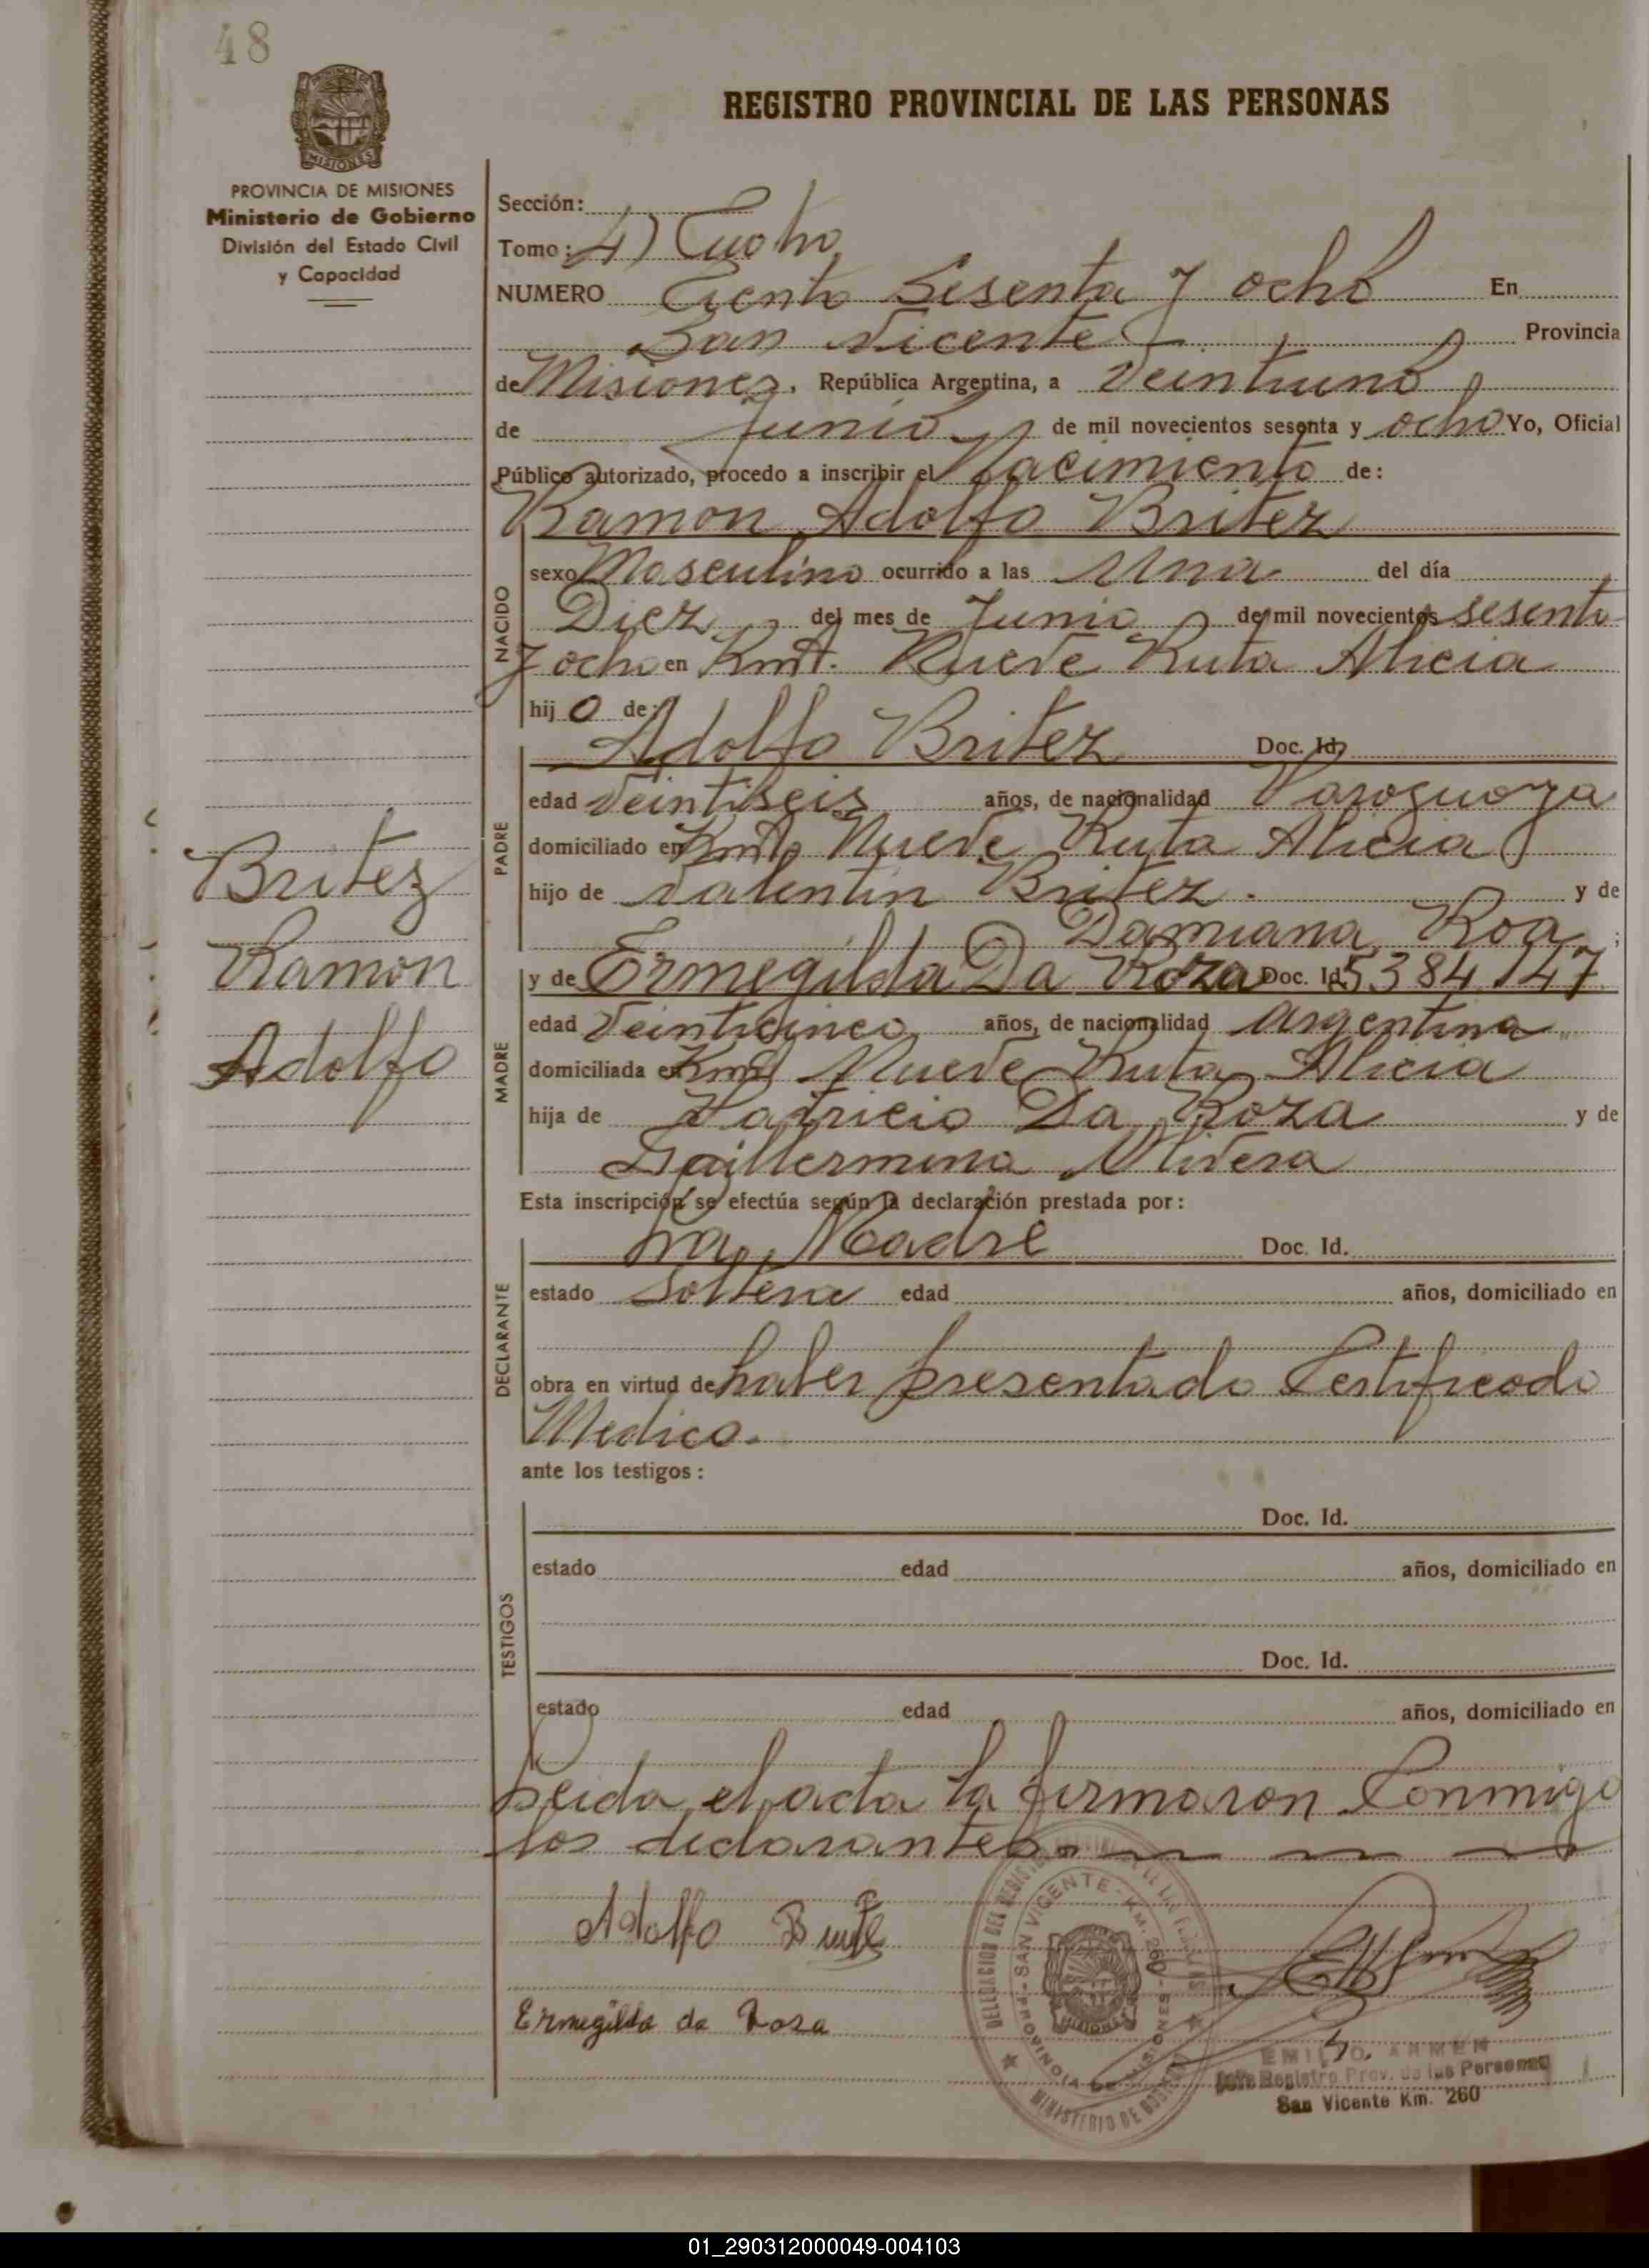 48
REGISTRO PROVINCIAL DE LAS PERSONAS
PROVINCIA DE MISIONES
Ministerio de Gobierno
División del Estado Civil
y Capacidad
Sección:
Tomo: 4) Cuatro
NUMERO Ciento Sesenta y ocho En
San Vicente Provincia
de Misiones. República Argentina, a Veintiuno
de Junio de mil novecientos sesenta y ocho Yo, Oficial
Público autorizado, procedo a inscribir el Nacimiento de:
Ramon Adolfo Britez
NACIDO
sexo Masculino ocurrido a las Una del día
Diez del mes de Junio de mil novecientos sesenta
y ocho en Kmt. Nueve Ruta Alicia
hijo de:
PADRE
Adolfo Britez Doc. Id.
edad Veintiseis años, de nacionalidad Paraguaya
domiciliado en Kmt. Nueve Ruta Alicia
hijo de Valentin Britez. y de
Damiana Roa;
MADRE
y de Ermegilda Da Roza Doc. Id. 5384147
edad Veinticinco años, de nacionalidad argentina
domiciliada en Kmt Nueve Ruta Alicia
hija de Patricio Da Roza y de
Guillermina Olivera
Britez
Ramon
Adolfo
Esta inscripción se efectúa según la declaración prestada por:
DECLARANTE
La Madre Doc. Id.
estado Soltera edad años, domiciliado en
obra en virtud de haber presentado Certificado
Medico.
ante los testigos:
TESTIGOS
Doc. Id.
estado edad años, domiciliado en
Doc. Id.
estado edad años, domiciliado en
Leida el acta la firmaron Conmigo
los declarantes.
Adolfo Britez
Ermegilda da Rosa
SAN VICENTE - KM. 260 -
PROVINCIA DE MISIONES
MINISTERIO DE GOBIERNO
MISIONES
Registro Prov. de las Personas
San Vicente Km. 260
01_290312000049-004103